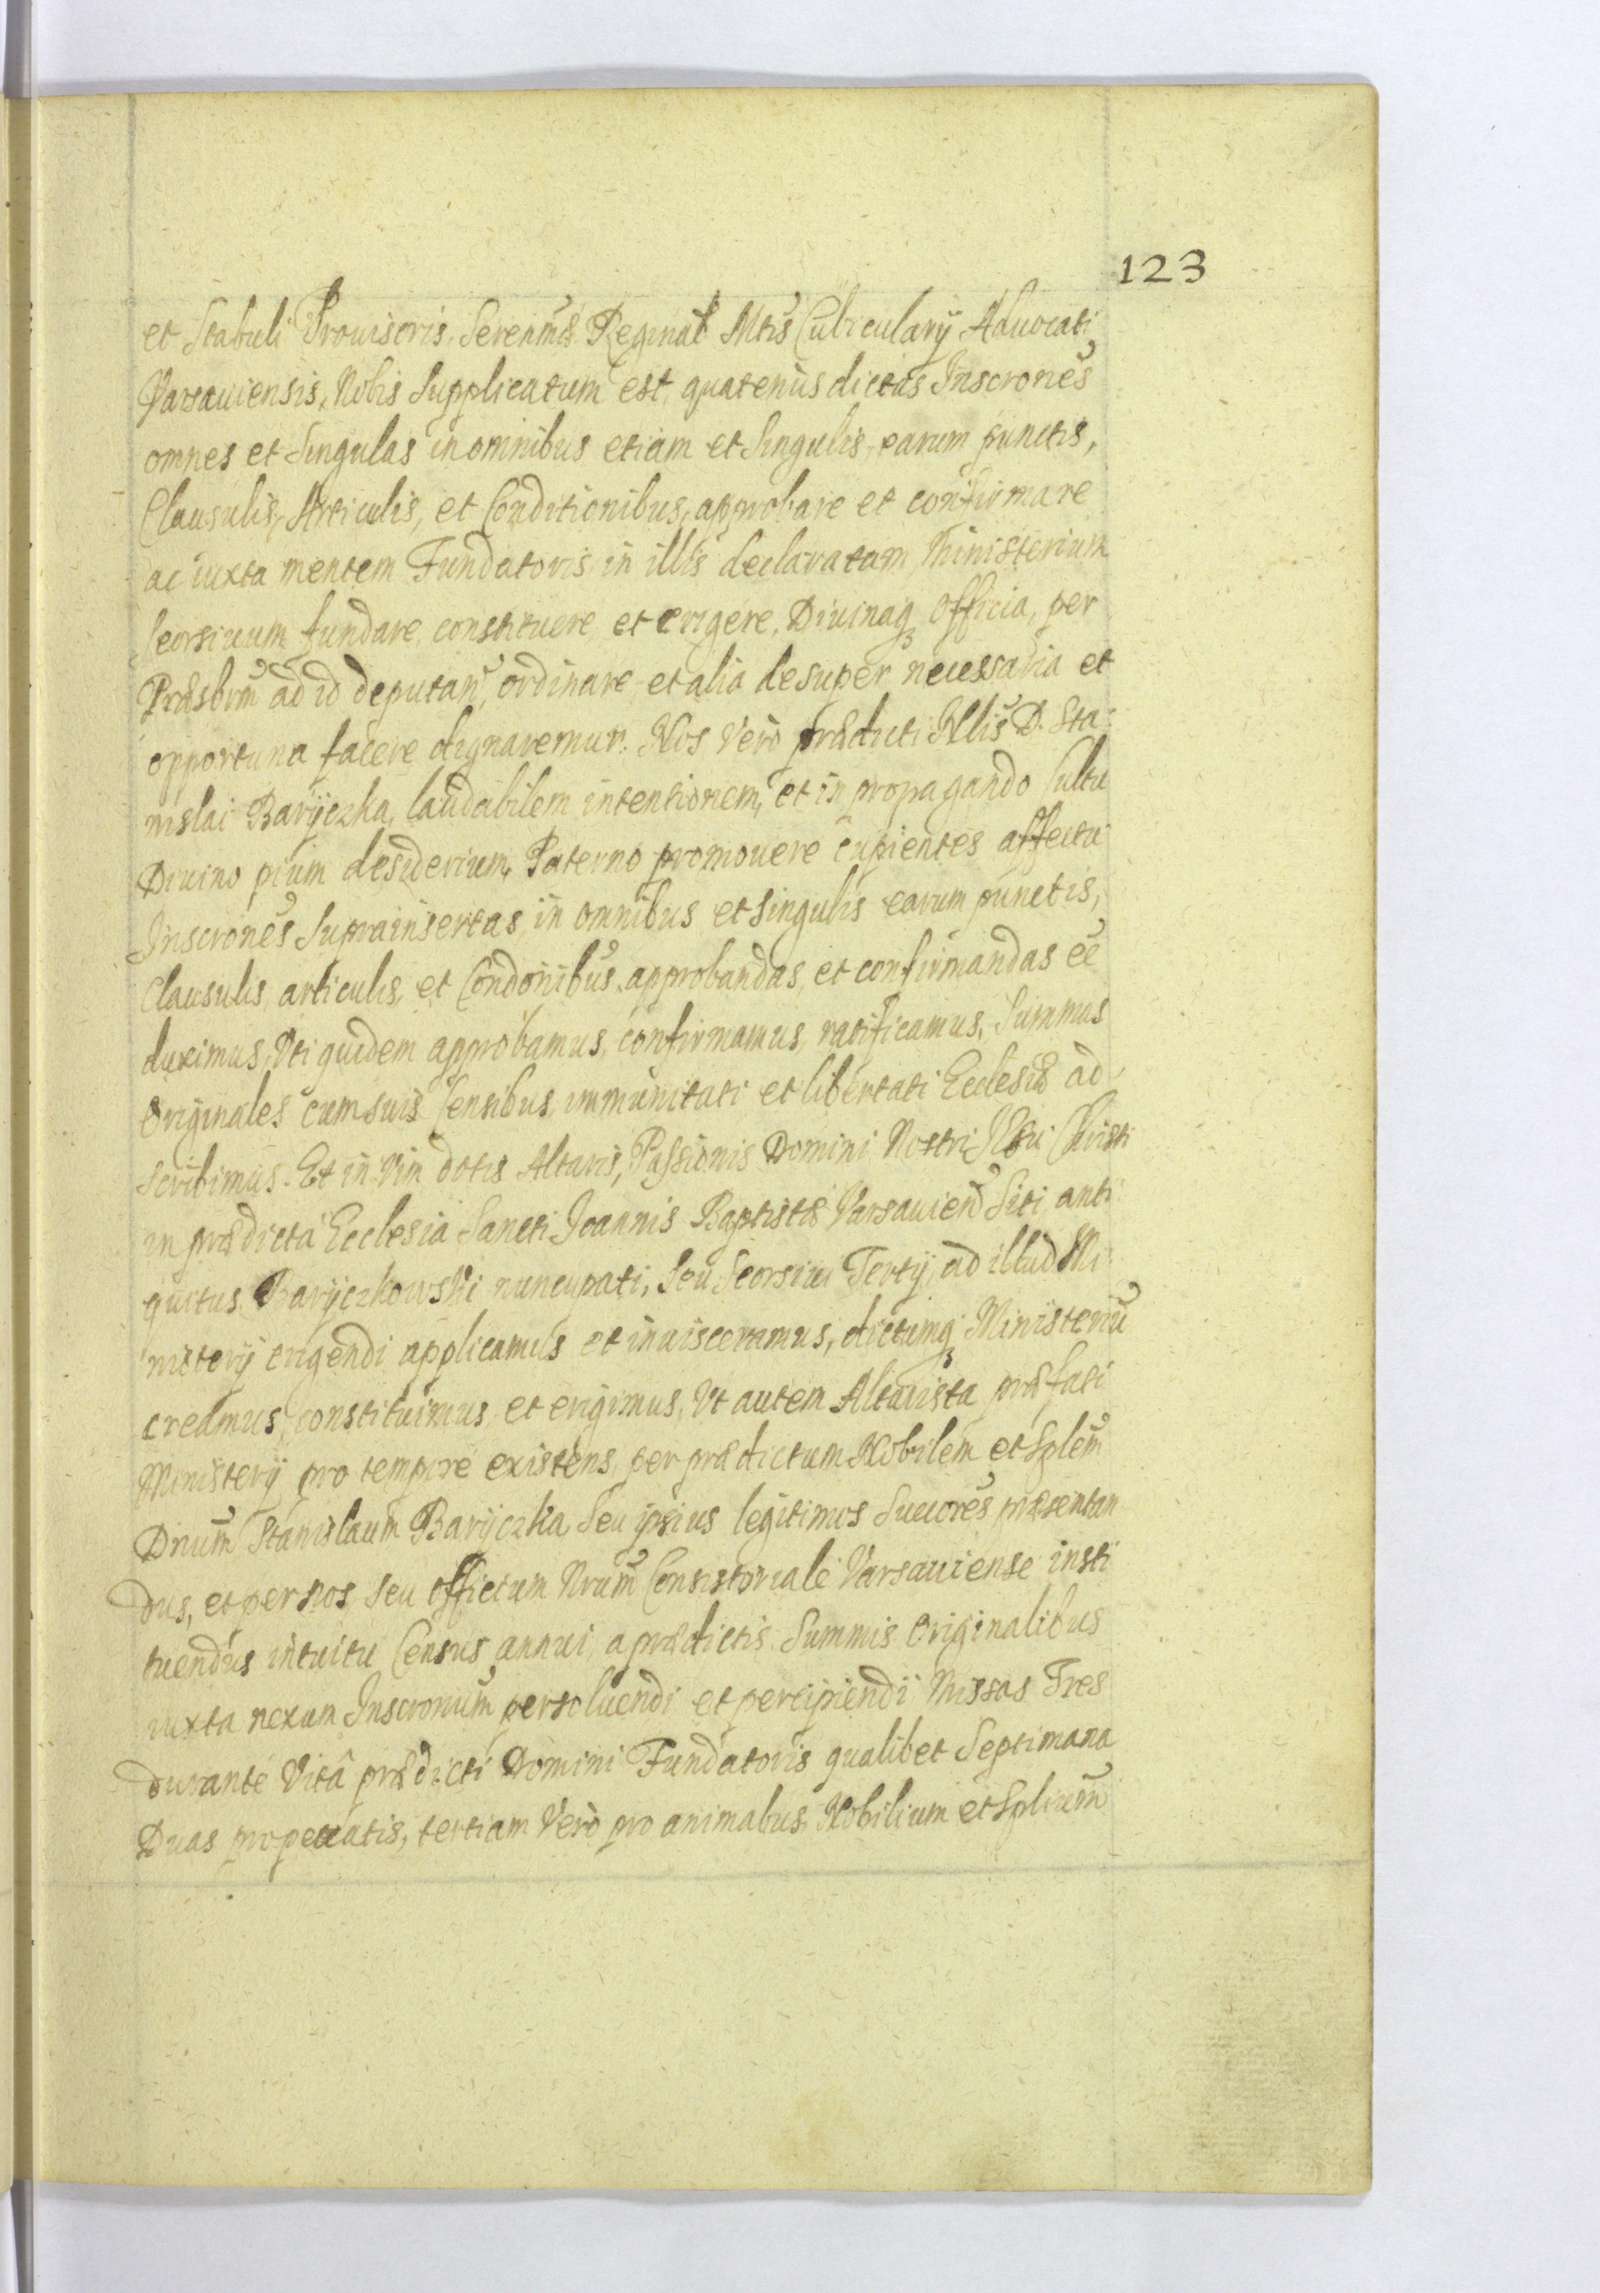 123
et Stabuli Prouisoris, Serenmæ Reginal Mtis Cubicularij Aduocati
Varsauiensis, Nobis Supplicatum est, quatenùs dictas Inscrones
omnes et Singulas in omnibus etiam et Singulis earum punctis,
Clausulis, Articulis, et Conditionibus, approbare et confirmare
ac iuxta mentem Fundatoris in illis declaratam Ministerium
Seorsiuum fundare constituere et erigere, Diuinaq3 Officia, per
Præsbrm ad id deputan, ordinare et alia desuper necessaria et
opportuna facere dignaremur. Nos Verò prædicti Nblis D. Sta:
nislai Baryczka, laudabilem intentionem, et in propagando Cultu
Diuino pium desiderium, Paterno promouere cupientes affectu
Inscrones Suprainsertas in omnibus et singulis earum punctis,
Clausulis, articulis, et Condonibus, approbandas, et confirmandas ee
duximus, Vti quidem approbamus, confirmamus, ratificamus, Summas
Originales cum suis Censibus, immunitati et libertati Ecclesiæ ad
scribimus. Et in Vim dotis Altaris, Passionis Domini Nostri Jesu Christi
in prædicta Ecclesia Sancti Joannis Baptistæ Varsauien Siti anti
quitus Baryczkowski nuncupati, Seu Seorsiui Tertij, ad illud Mi
nisterij erigendi applicamus et inuisceramus, dictumq3 Ministeriu
creamus, constituimus, et erigimus, Vt autem Altarista præfati
Ministerij pro tempore existens, per prædictum Nobilem et Splem
Dnum Stanislaum Baryczka Seu ipsius legitimos Succores præsentan
dus, et per Nos seu Officium Nrum Consistoriale Varsauiense insti
tuendus intuitu Census annui, a prædictis Summis Originalibus
iuxta nexum Inscronum persoluendi et percipiendi Missas Tres
durante Vitâ prædicti Domini Fundatoris qualibet Septimana
Duas pro peccatis, tertiam Verò pro animabus Nobilium et Splium